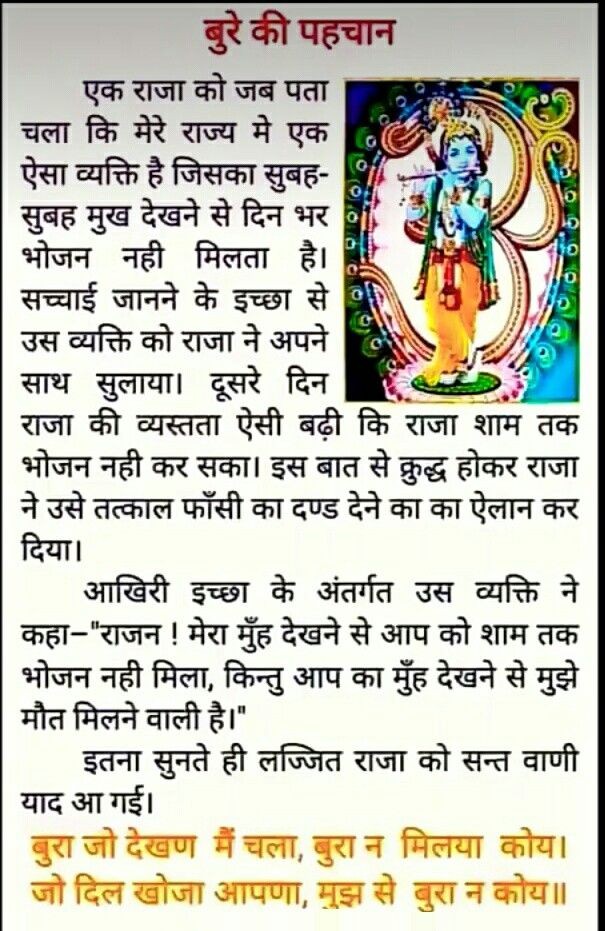 बुरे की पहचान
एक राजा को जब पता
चला कि मेरे राज्य मे एक
ऐसा व्यक्ति है जिसका सुबह-
सुबह मुख देखने से दिन भर
भोजन नही मिलता है।
सच्चाई जानने के इच्छा से
उस व्यक्ति को राजा ने अपने
साथ सुलाया। दूसरे दिन
राजा की व्यस्तता ऐसी बढ़ी कि राजा शाम तक
भोजन नही कर सका। इस बात से क्रुद्ध होकर राजा
ने उसे तत्काल फाँसी का दण्ड देने का का ऐलान कर
दिया।
आखिरी इच्छा के अंतर्गत उस व्यक्ति ने
कहा–"राजन ! मेरा मुँह देखने से आप को शाम तक
भोजन नही मिला, किन्तु आप का मुँह देखने से मुझे
मौत मिलने वाली है।"
इतना सुनते ही लज्जित राजा को सन्त वाणी
याद आ गई।
बुरा जो देखण मैं चला, बुरा न मिलया कोय।
जो दिल खोजा आपणा, मुझ से बुरा न कोय॥